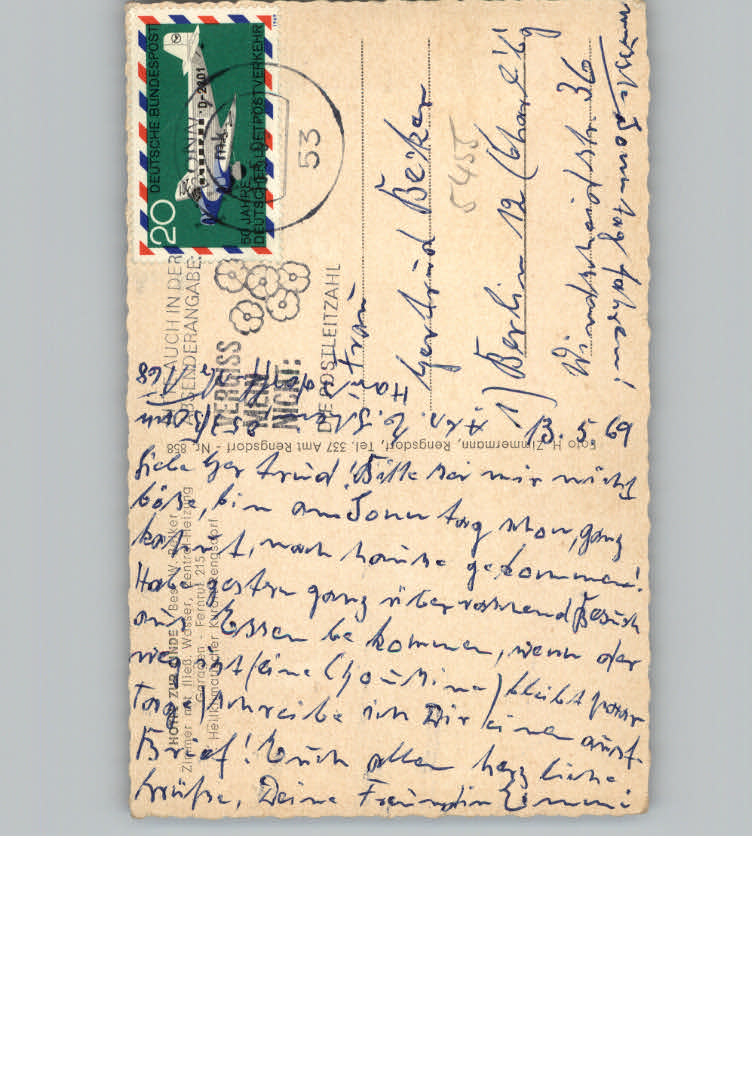 DEUTSCHE BUNDESPOST
20
50 JAHRE
DEUTSCHER LUFTPOSTVERKEHR
D-2201
1969
53
AUCH IN DER
ABSENDERANGABE:
VERGISS
MEIN
NICHT:
DIE POSTLEITZAHL
Frau
Gertrud Becker
5455
1) Berlin 12 (Charl'bg
Windscheidstr. 36
Sonntag fahren!
Abs.
13. 5. 69
Foto H. Zimmermann, Rengsdorf, Tel. 337 Amt Rengsdorf - Nr. 858
HOTEL ZUR LINDE
Zimmer mit fließ. Wasser, Zentral-Heizung
Garagen - Fernruf 215
Heilklimatischer Kurort Rengsdorf
Liebe Gertrud! Bitte sei mir nicht
böse, bin am Sonntag schon, ganz
kaputt, nach hause gekommen!
Habe gestern ganz überraschend Besuch
aus Essen bekommen, wenn der
weg ist (eine Cousine) bleibt paar
Tage) schreibe ich Dir einen ausf.
Brief! Euch allen herzliche
Grüße, Deine Freundin Emmi